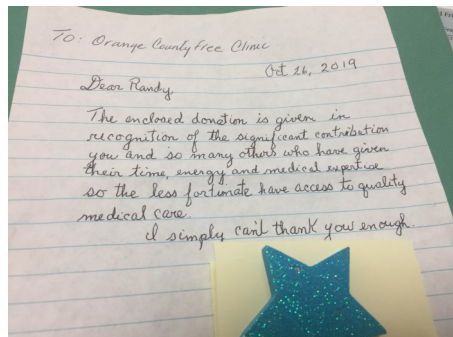 To: Orange County Free Clinic
Oct 26, 2019
Dear Randy,
The enclosed donation is given in
recognition of the significant contribution
you and so many others who have given
their time, energy and medical expertise
so the less fortunate have access to quality
medical care.
I simply can't thank you enough.